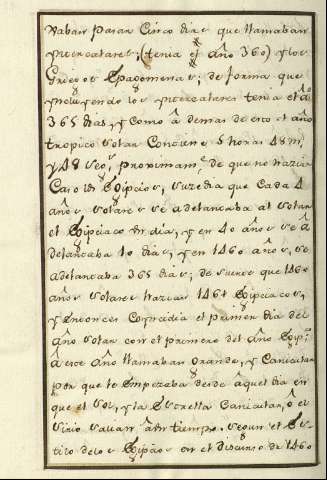 vaban pasar Cinco dias que llamaban
yntercalares; (tenia el año 360) y los
Griegos Epagomenas; de forma que
yncluyendo los yntercalares tenia el año
365 dias, y como á demas de esto el año
tropico Solar Contiene 5 horas 48 m.
y 48 seg.s proximam.te de que no hazian
Caso los Egipcios, suzedia que Cada 4
años Solares se adelantaba al Solar
el Egipciaco un dia, y en 40 años se á
delantaba 10 dias, y en 1460 años, se
adelantaba 365 dias; de suerte que 1460
años Solares hazian 1461 Egipciacos,
y entonces Coynzidia el primer dia del
año Solar con el primero del año Egip.o
á este año llamaban Grande, y Canicular
por que le Empezaba desde áquel dia en
que el Sol, y la Estrella Canicular, ó el
Sirio salian á un tiempo. Segun el Es-
tilo de los Egipcios en el discurso de 1460